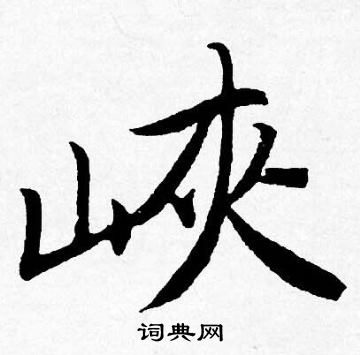 峽
词典网